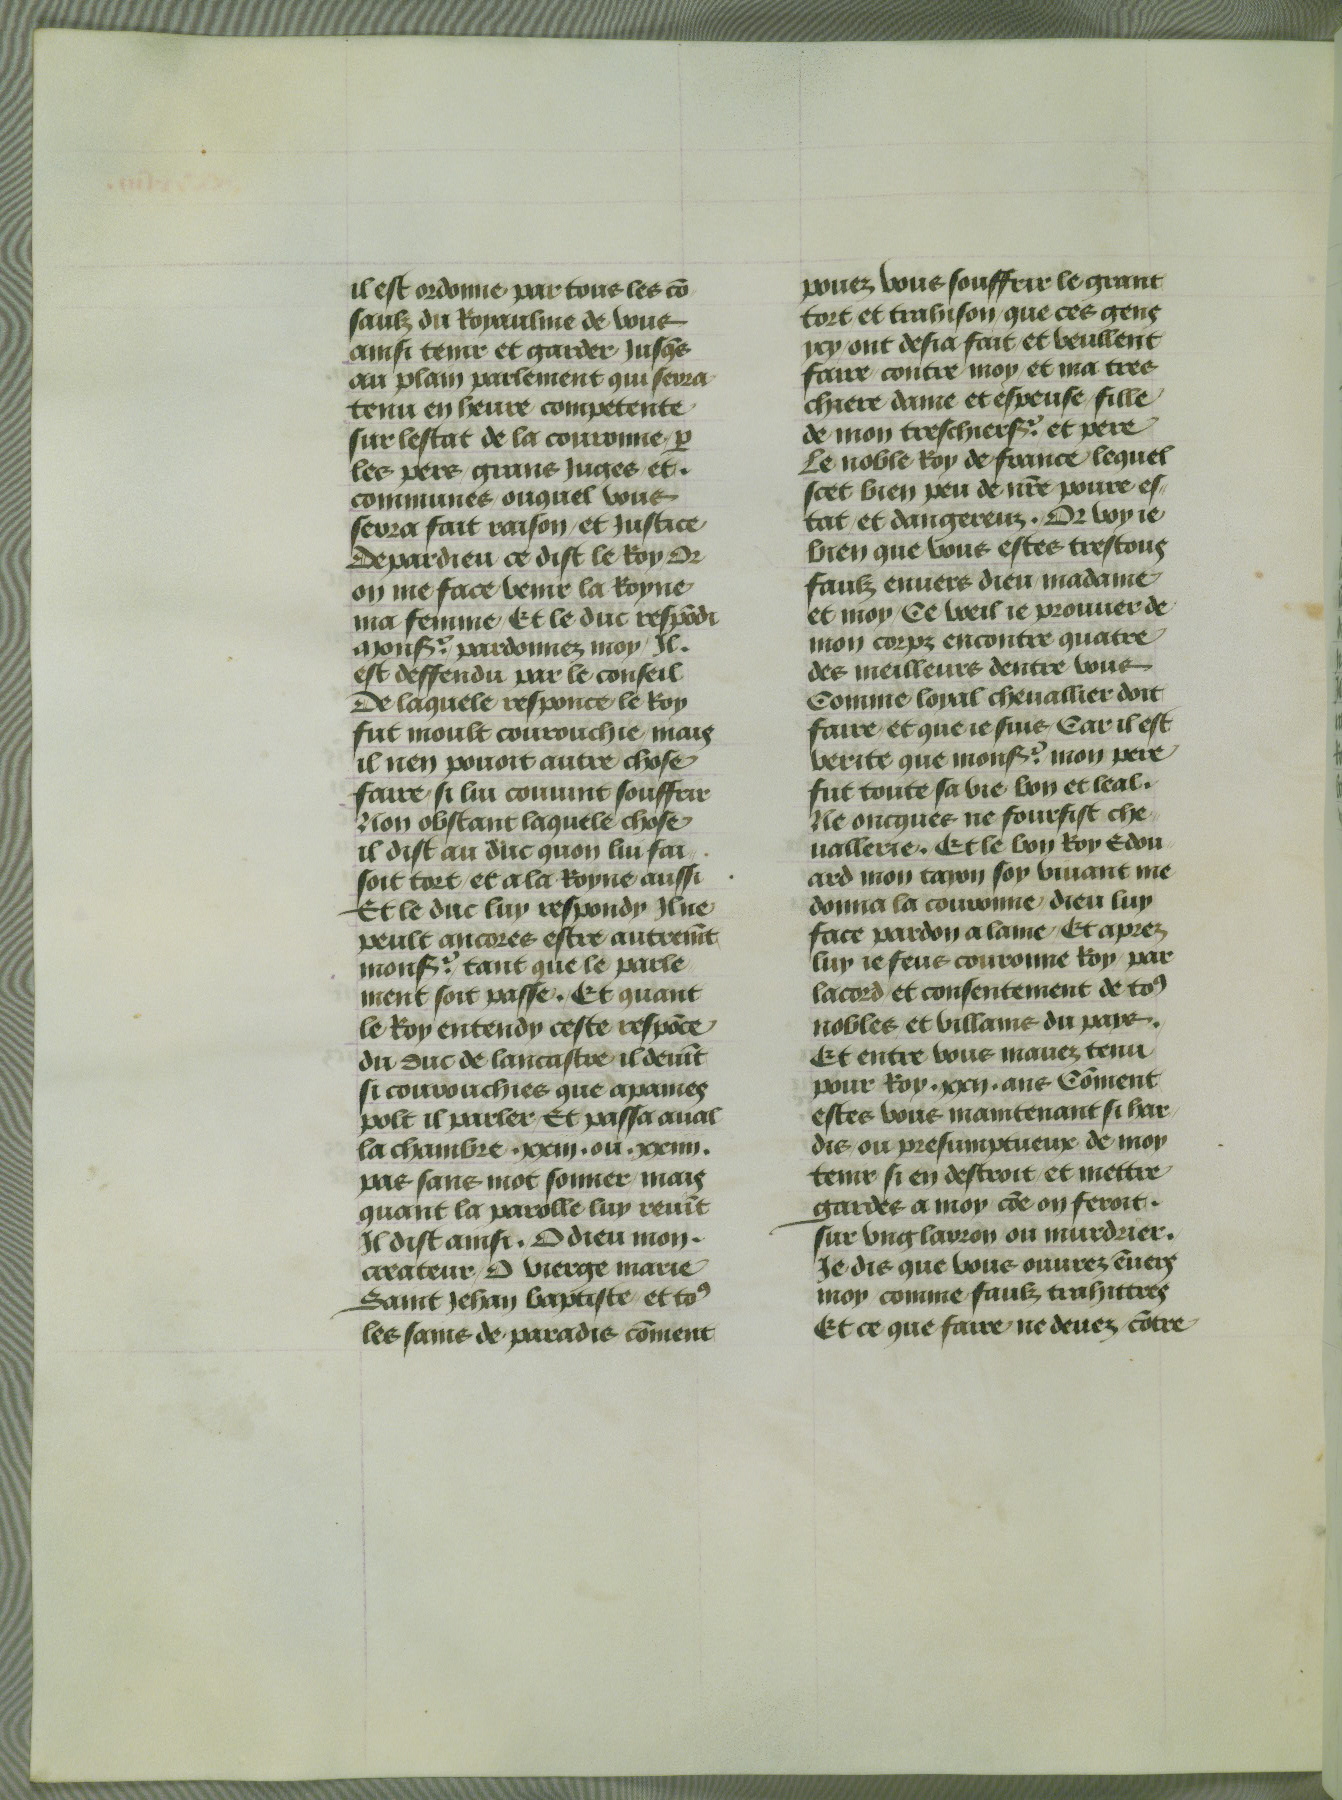 il est ordonne par tous les cō
saulz du Royaulme de vous
ainsi tenir et garder Jusq̄s
au plain parlement qui sera
tenu en heure competente
sur lestat de la couronne p̲
les pers grans Juges et.
communes ouquel vous
sera fait raison et Justice
Depardieu ce dist le Roy Or
on me face venir la Royne
ma femme Et le duc respōdi
Monsʳ pardonnez moy Il.
est deffendu par le conseil
De laquele responce le Roy
fut moult courouchie mais
il nen pouoit autre chose
faire si lui couuint souffrir
Non obstant laquele chose
il dist au duc quon lui fai
soit tort et a la Royne aussi
Et le duc luy respondy Il ne
peult ancores estre autremēt
monsʳ tant que le parle
ment soit passe. Et quant
le Roy entendy ceste respōce
du Duc de lancastre il deuīt
si courouchies que apaines
polt il parler Et passa aual
la chambre .xxiii. ou .xxiiii.
pas sans mot sonner mais
quant la parolle luy reuīt
Il dist ainsi. O dieu mon.
createur O vierge marie
Saint Jehan baptiste et toꝰ
les sains de paradis cōment
pouez vous souffrir le grant
tort et trahison que ces gens
ycy ont desia fait et veullent
faire contre moy et ma tres
chiere dame et espeuse fille
de mon treschiersʳ et pere
Le noble Roy de france lequel
scet bien peu de nr̄e poure es
tat et dangereux. Or voy ie
bien que vous estes trestous
faulz enuers dieu madame
et moy Ce weil ie prouuer de
mon corpz encontre quatre
des meilleurs dentre vous
Comme loyal cheuallier doit
faire et que ie suis Car il est
verite que monsʳ mon pere
fut toute sa vie bon et leal.
Ne oncques ne fourfist che
uallerie. Et le bon Roy Edou
ard mon tayon soy viuant me
donna la couronne dieu luy
face pardon a lame Et aprez
luy ie feus couronne Roy par
lacord et consentement de toꝰ
nobles et villains du pays.
Et entre vous mauez tenu
pour Roy .xxii. ans Cōment
estes vous maintenant si har
dis ou presumptueux de moy
tenir si en destroit et mettre
gardes a moy cōe on feroit.
sur vng larron ou murdrier.
Je dis que vous ouurez ēuers
moy comme faulz trahittres
Et ce que faire ne deuez cōtre